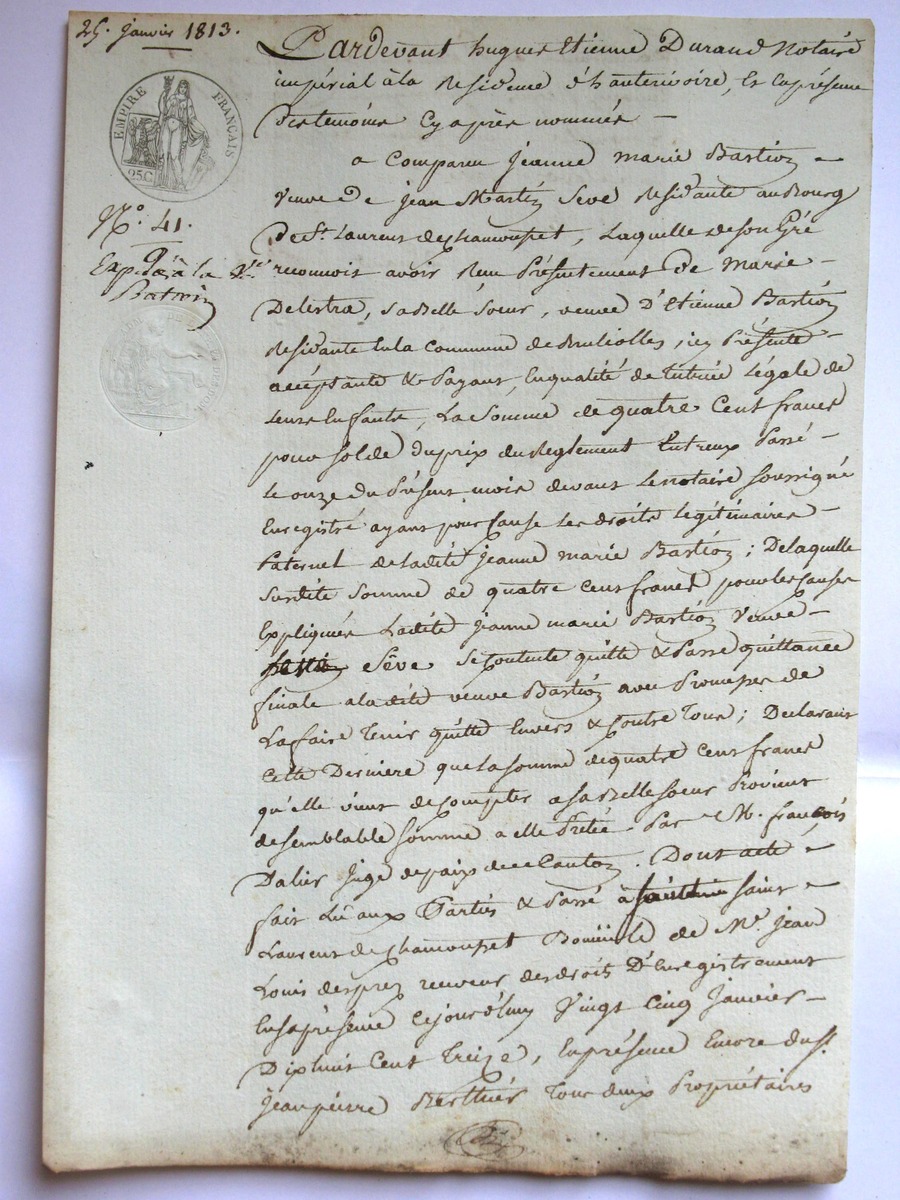 25. Janvier 1813.
EMPIRE FRANÇAIS
25C.
N.° 41.
Exp. à la
Pardevant hugues Etienne Durand Notaire
impérial à la Residence d'hauterivoire, Et En présence
Des temoins Cy après nommés —
a Comparu Jeanne Marie Bastion
Veuve De Jean Martin Seve Residante au Bourg
De St. Laurent de Chamousset, Laquelle de son Gré
reconnois avoir Reçu Présentement De Marie
Delestra, sa Belle Soeur, veuve D'Etienne Bastion
Residante En la Commune de Brullioles, icy Présente
acceptante & Payant, En qualité de tutrice Légale de
Leurs Enfants, La Somme de quatre Cent francs
pour solde du prix du Reglement Entreux Passé
Le onze du Présent mois devant Le notaire soussigné
Enregistré ayant pour Cause Les droits Légitimaires
Paternel de Ladite Jeanne marie Bastion; De laquelle
Susdite Somme de quatre Cent francs pour les Causes
Expliquées Ladite Jeanne marie Bastion Veuve
Sève se Contente quitte & Passe quittance
finale a Ladite veuve Bastion avec Promesse de
La faire Tenir quitte Envers & Contre Tous; Declarant
Cette Derniere que La somme de quatre Cent francs
qu'elle vient de Compter a sa Belle Soeur Provient
de semblable Somme a elle Prêtée Par M. françois
Dalier Juge de paix de ce Canton. Dont acte
fait Lû aux Parties & Passé à saint
Laurent de Chamousset Domicile de Mr. Jean
Louis desprez receveur des droits D'Enregistrement
En sa présence Cejourd'huy Vingt Cinq Janvier
Dix huit Cent Treize, En présence Encore du Sr.
Jean pierre Berthier Tous deux Propriétaires